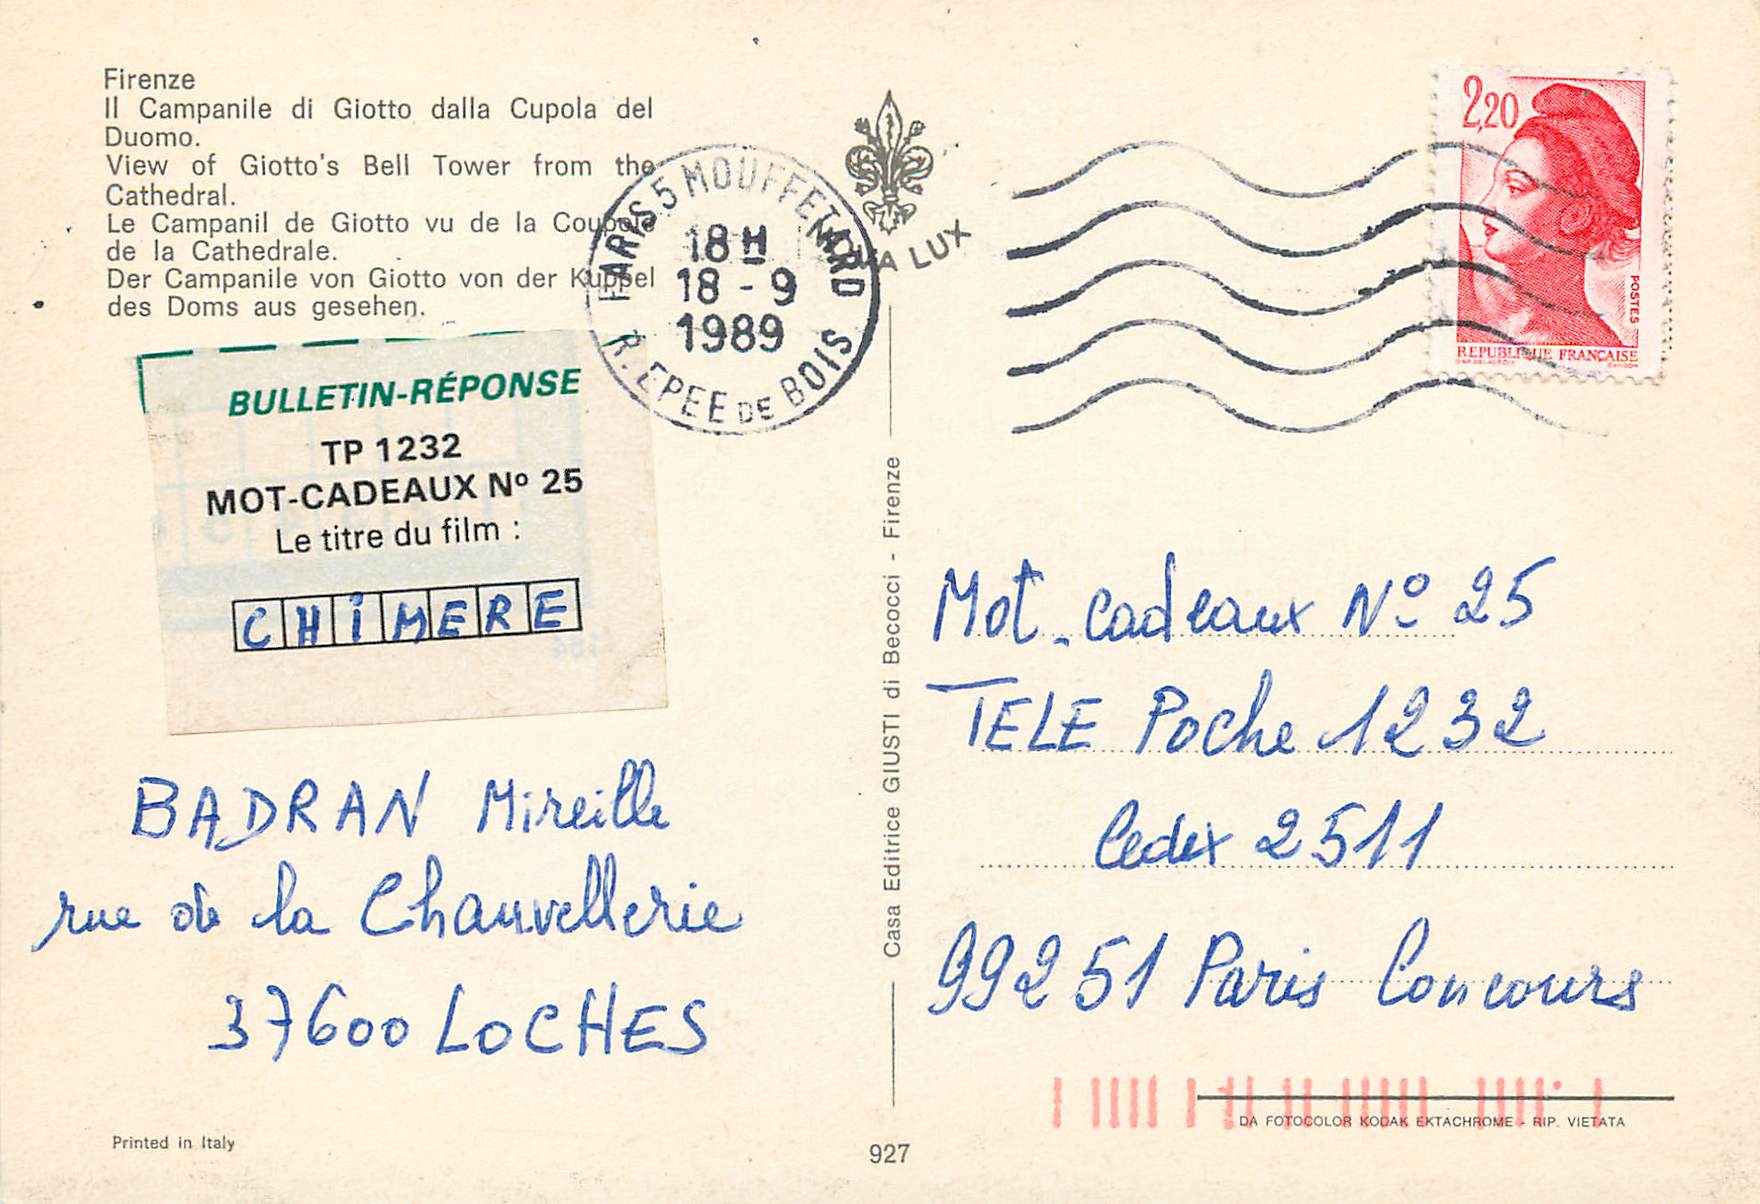 Firenze
Il Campanile di Giotto dalla Cupola del
Duomo.
View of Giotto's Bell Tower from the
Cathedral.
Le Campanil de Giotto vu de la Coupole
de la Cathedrale.
Der Campanile von Giotto von der Kuppel
des Doms aus gesehen.
PARIS 5 MOUFFETARD
18 H
18 - 9
1989
R. EPEE DE BOIS
A LUX
2,20
POSTES
REPUBLIQUE FRANÇAISE
BULLETIN-RÉPONSE
TP 1232
MOT-CADEAUX Nº 25
Le titre du film :
CHIMERE
BADRAN Mireille
rue de la Chauvellerie
37600 LOCHES
Casa Editrice GIUSTI di Becocci - Firenze
Mot-cadeaux Nº 25
TELE Poche 1232
Cedex 2511
99251 Paris Concours
DA FOTOCOLOR KODAK EKTACHROME - RIP. VIETATA
Printed in Italy
927